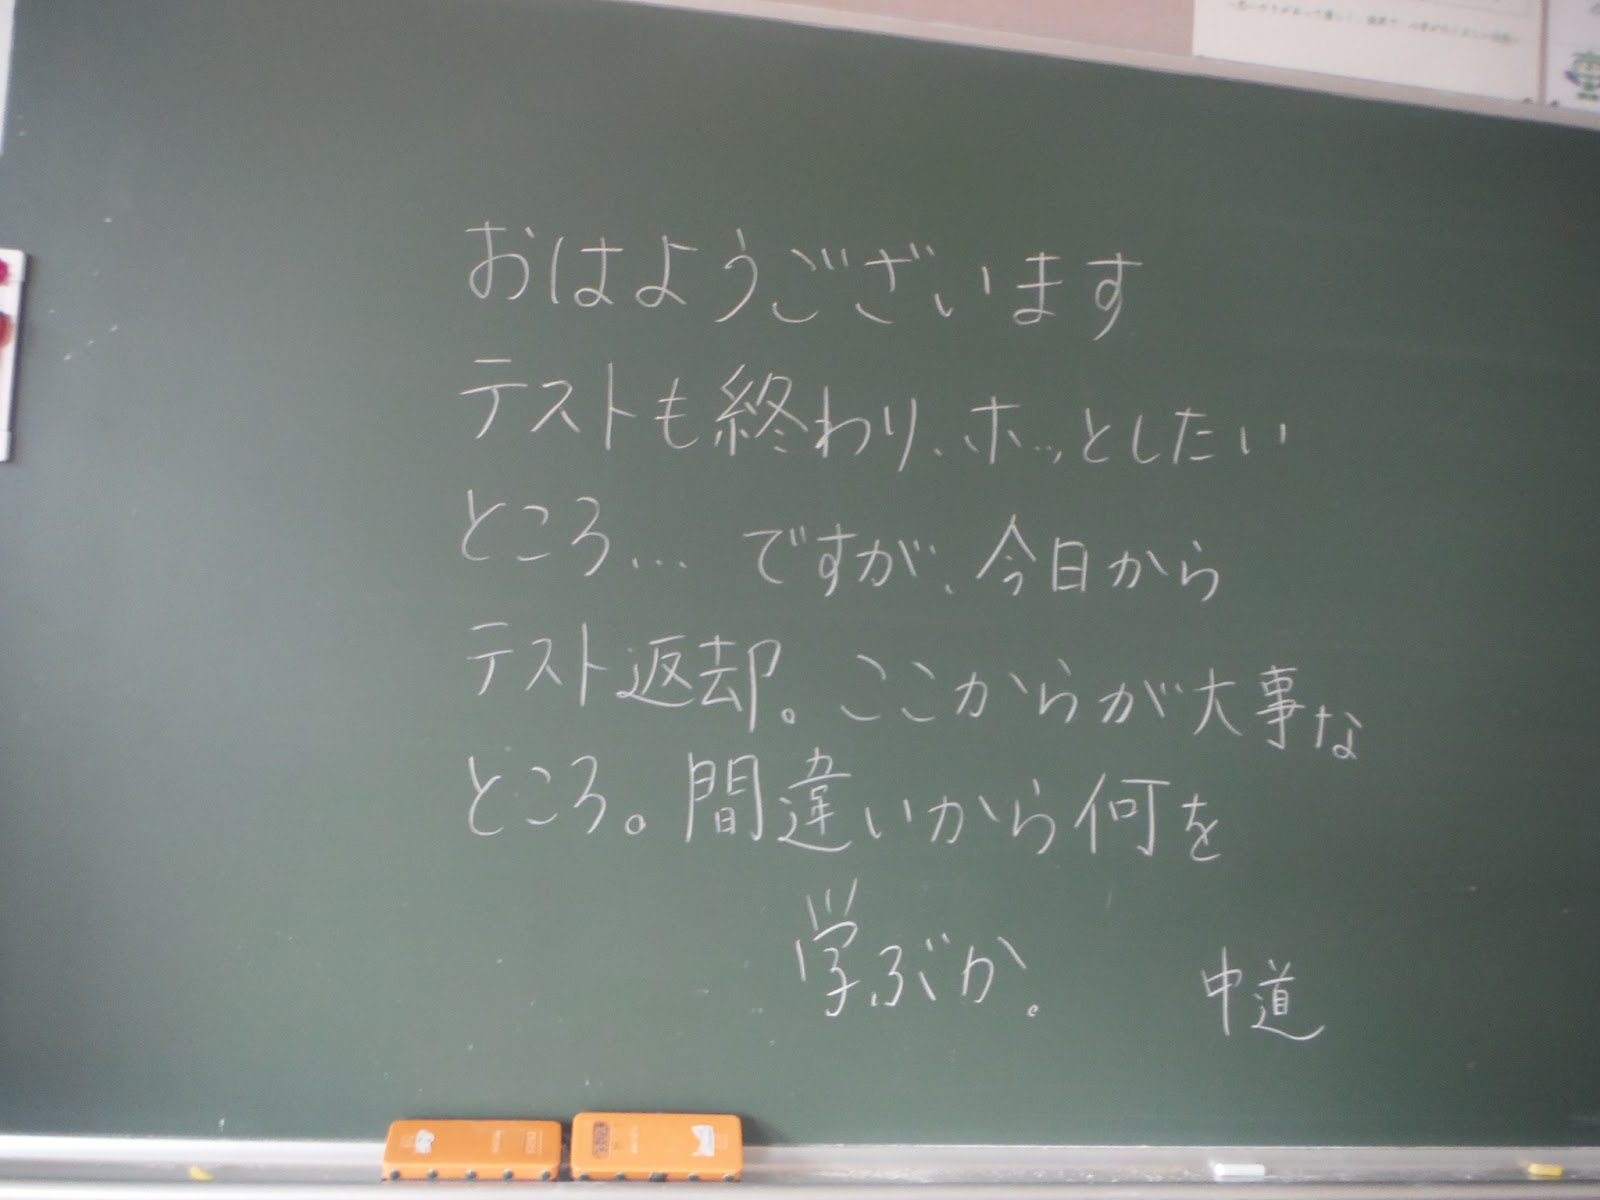 おはようございます
テストも終わり、ホッとしたい
ところ… ですが、今日から
テスト返却。ここからが大事な
ところ。間違いから何を
学ぶか。 中道